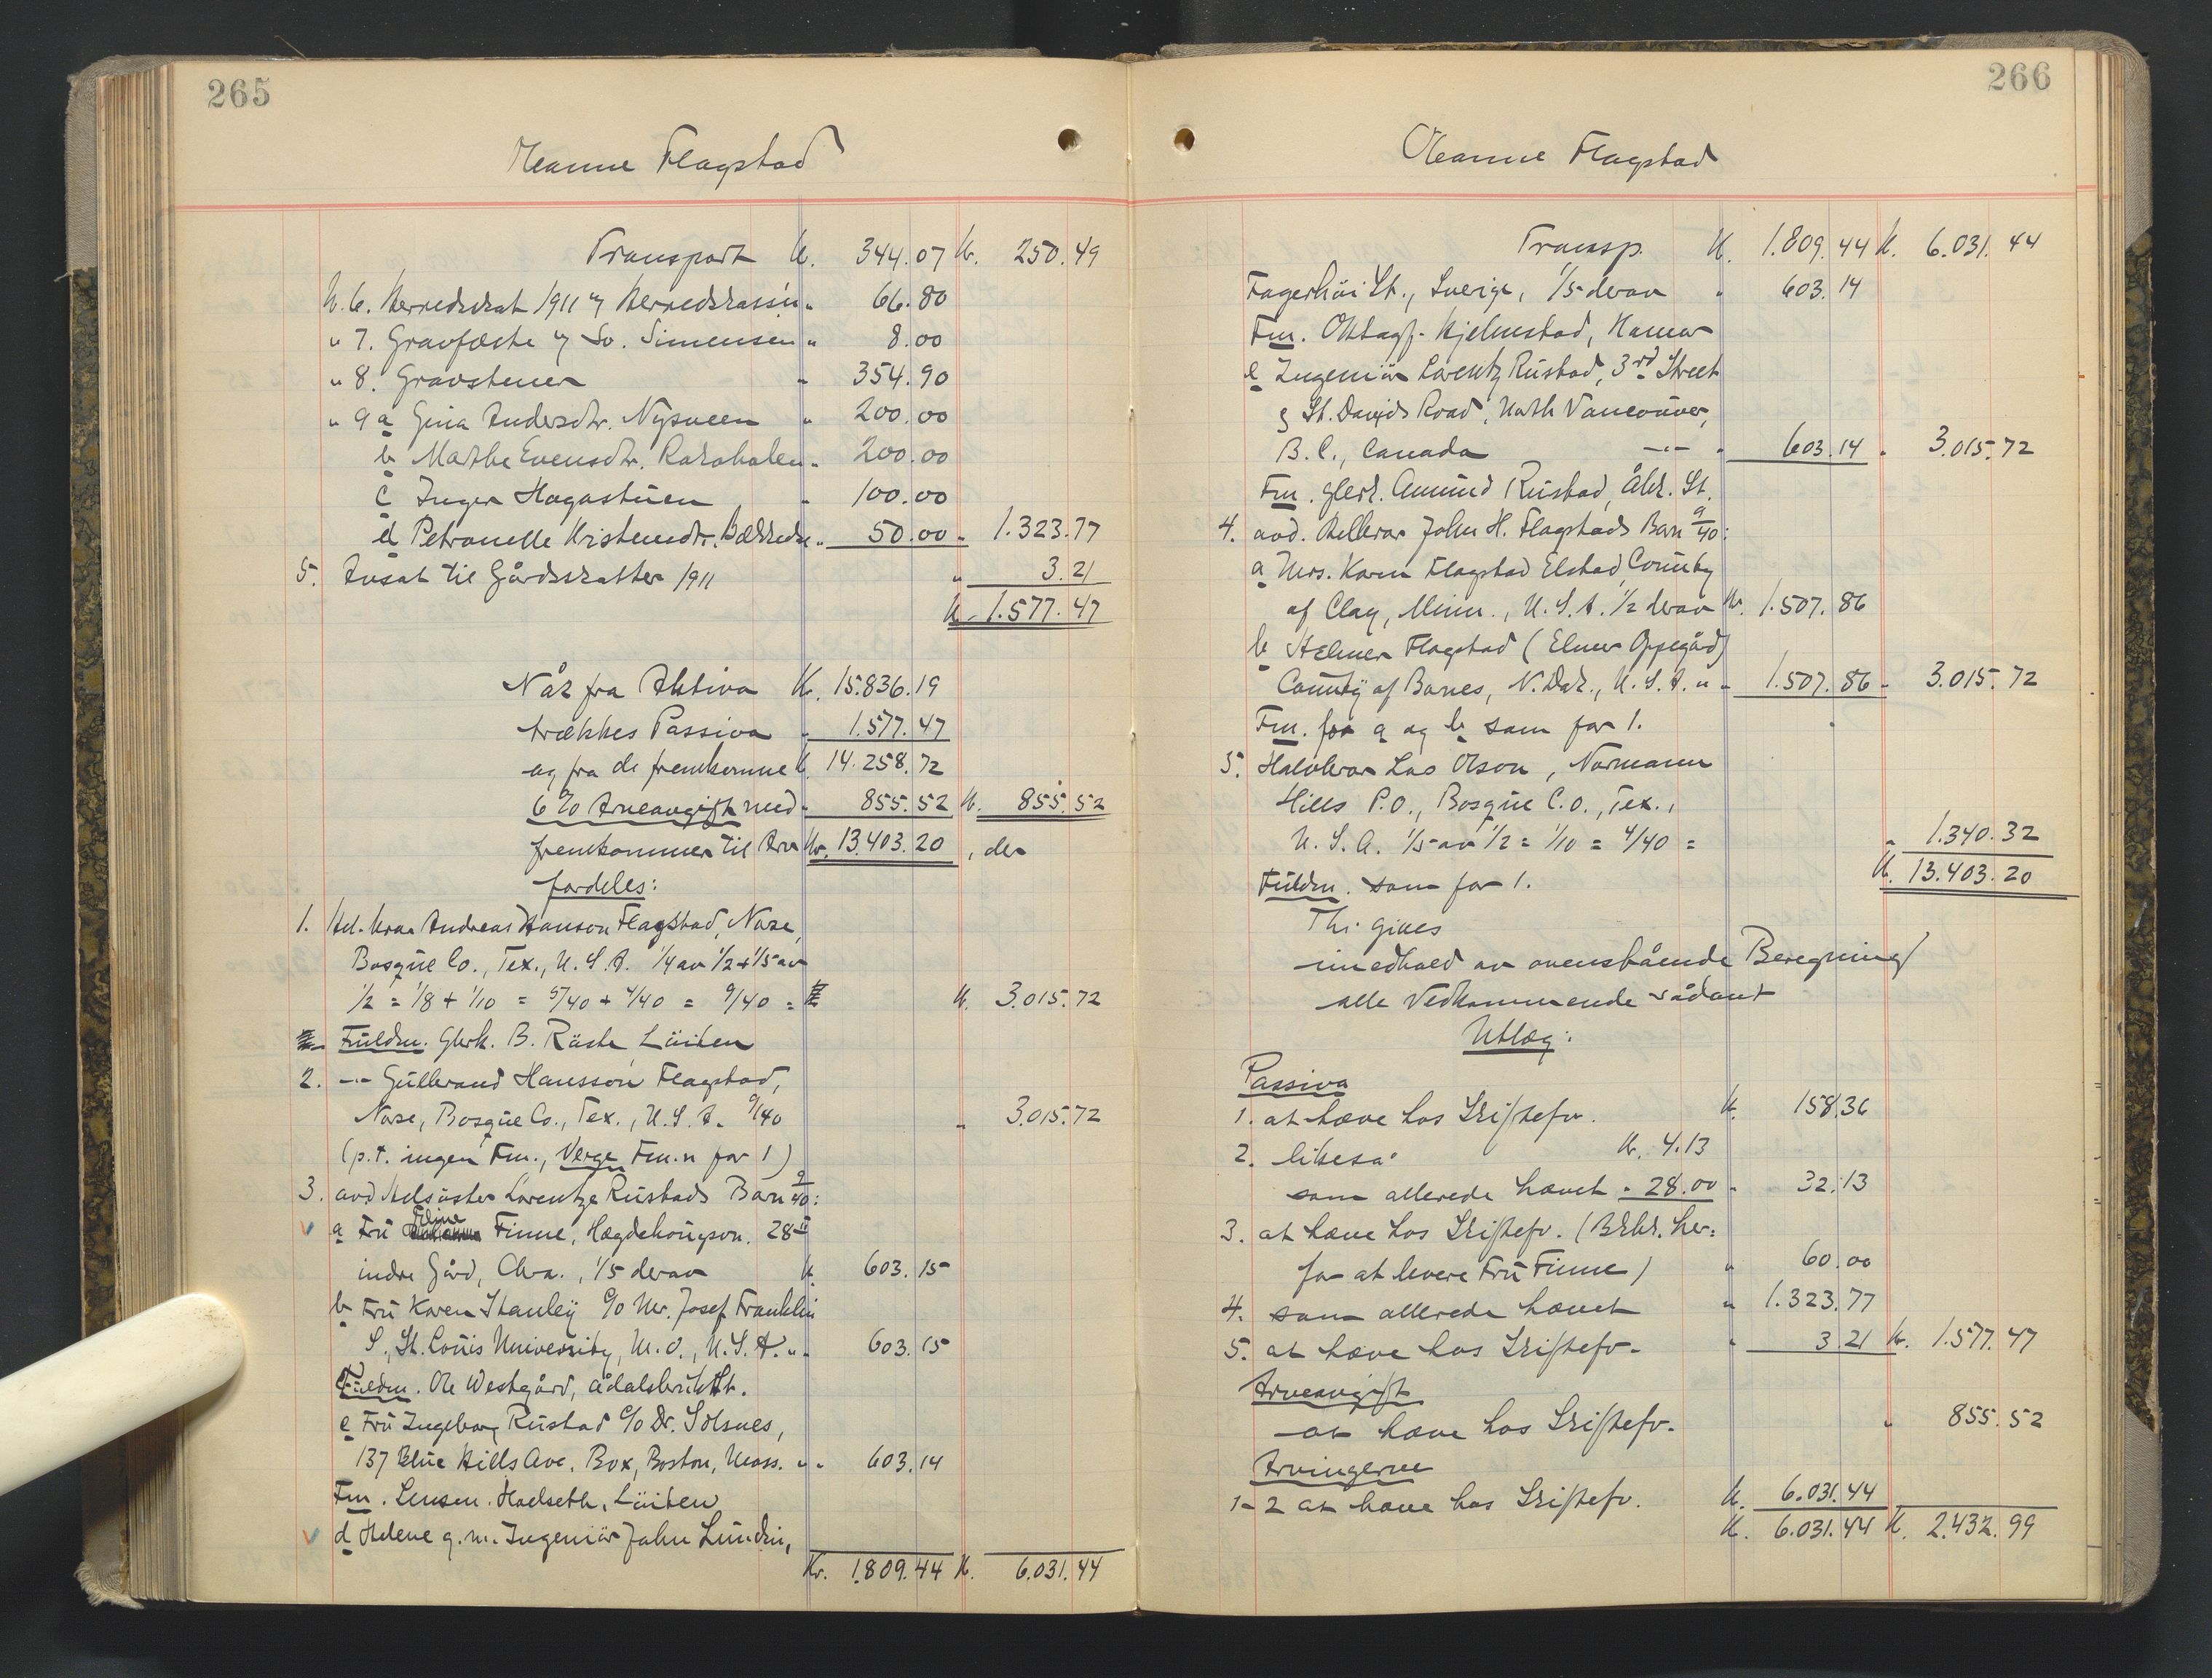 265
Oleanne Flagstad
Transport Kr. 344.07 Kr. 250.49
N. 6. Herredsskat 1911 " 66.80
" 7. Gravfæste Sv. Simensen " 8.00
" 8. Gravstenen " 354.90
" 9 a Gina Andersdtr. Nysveen " 200.00
b Marthe Evensdtr. " 200.00
c Inger Hagastuen " 100.00
d Petronelle Kristensdtr. " 50.00 " 1.323.77
5. Avsat til Gårdsskatter 1911 " 3.21
Kr. 1.577.47
Når fra Aktiva Kr. 15.836.19
trækkes Passiva " 1.577.47
og fra de fremkomne Kr. 14.258.72
6 % Arveavgift med " 855.52 Kr. 855.52
fremkommer til Arv Kr. 13.403.20, der
fordeles:
1. Andreas Hanson Flagstad, Norse,
Bosque Co., Tex., U.S.A. 1/4 av 1/2 + 1/5 av
1/2 = 1/8 + 1/10 = 5/40 + 4/40 = 9/40 = Kr. 3.015.72
Fuldm. Glerk. B. Løiten
2. -"- Gulbrand Hansson Flagstad,
Norse, Bosque Co., Tex., U.S.A. 9/40 " 3.015.72
(p.t. ingen Fm., Verge Fm.n for 1)
3. avd Helsøster Lorentze Rustads Barn 9/40:
a Fru Eline Finne, Hægdehougsvn. 28 II
indre Gård, Chra., 1/5 derav Kr. 603.15
b Fru Karen Stanley c/o Mr. Josef Franklin
S., St. Louis University, M.O., U.S.A. " " 603.15
Fuldm. Ole Westgård, Ådalsbruk St.
c Fru Ingeborg Rustad c/o Dr. Solsnes,
137 Blue Hills Ave. Box, Boston, Mass. " " 603.14
Fm. Lensm. Hoelseth, Løiten
d Helene g.m. Ingeniør John Lundin,
Kr. 1.809.44 Kr. 6.031.44
266
Oleanne Flagstad
Transp. Kr. 1.809.44 Kr. 6.031.44
Fagerhøi St., Sverige, 1/5 derav " 603.14
Fm. Kjelmstad, Hamar
e Ingeniør Lorentz Rustad, 3rd Street
& St. Davids Road, North Vancouver,
B.C., Canada -"- " 603.14 " 3.015.72
Fm. Amund Rustad, St.
4. avd. Helbror John H. Flagstads Barn 9/40:
a Mrs. Karen Flagstad Elstad, County
of Clay, Minn., U.S.A. 1/2 derav Kr. 1.507.86
b Helmer Flagstad (Elmer Oppegård)
County of Barnes, N. Dak., U.S.A. " " 1.507.86 " 3.015.72
Fm. for a og b som for 1.
5. Halvbror Lars Olson, Normann
Hills P.O., Bosque C.o., Tex.,
U.S.A. 1/5 av 1/2 = 1/10 = 4/40 = " 1.340.32
Kr. 13.403.20
Fuldm. som for 1.
Thi gives
i medhold av ovenstående Beregning
alle Vedkommende sådant
Utlæg:
Passiva
1. at hæve hos Skiftefv. Kr. 158.36
2. likeså Kr. 4.13
som allerede hævet " 28.00 " 32.13
3. at hæve hos Skiftefv. (
for at levere Fru Finne) " 60.00
4. som allerede hævet " 1.323.77
5. at hæve hos Skiftefv. " 3.21 Kr. 1.577.47
Arveavgift
at hæve hos Skiftefv. " 855.52
Arvingerne
1-2 at hæve hos Skiftefv. Kr. 6.031.44
Kr. 6.031.44 Kr. 2.432.99